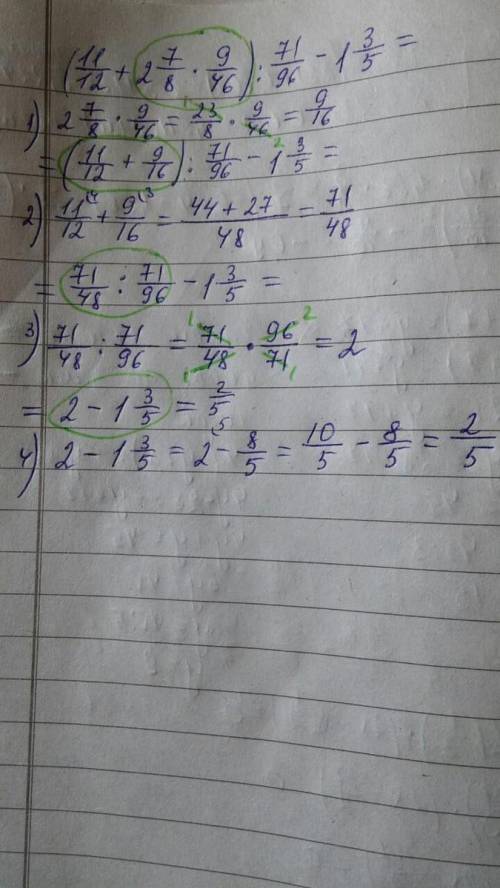 (11/12 + 2 7/8 · 9/46) : 71/96 - 1 3/5 =
1) 2 7/8 · 9/46 = 23/8 · 9/46 = 9/16
= (11/12 + 9/16) : 71/96 - 1 3/5 =
2) 11/12 + 9/16 = 44+27/48 = 71/48
= 71/48 : 71/96 - 1 3/5 =
3) 71/48 : 71/96 = 71/48 · 96/71 = 2
= 2 - 1 3/5 = 2/5
4) 2 - 1 3/5 = 2 - 8/5 = 10/5 - 8/5 = 2/5